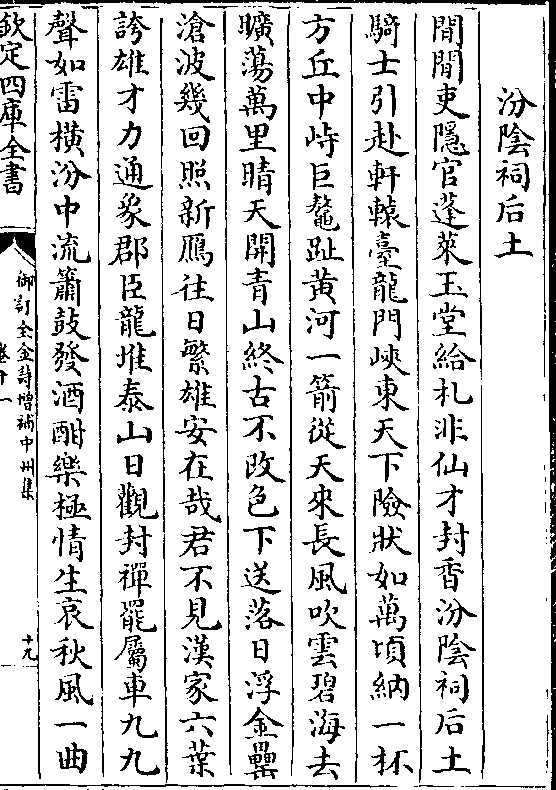 汾陰祠后土
閒閒吏隱官蓬萊玉堂給札非仙才封香汾陰祠后土
騎士引赴軒轅臺龍門峽東天下險狀如萬頃納一杯
方丘中峙巨鼇趾黄河一箭從天來長風吹雲碧海去
曠蕩萬里晴天開青山終古不改色下送落日浮金罍
滄波幾回照新鴈往日繁雄安在哉君不見漢家六葉
誇雄才力通象郡臣龍堆泰山日觀封禪罷屬車九九
聲如雷横汾中流簫鼓發酒酣樂極情生哀秋風一曲
欽定四庫全書
御訂全金詩増補中州集
卷十一
十九